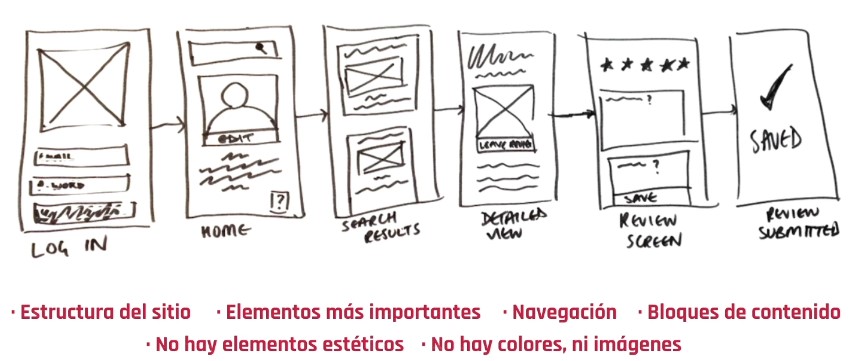 EMAIL
P.WORD
LOG IN
EDIT
?
HOME
SEARCH
RESULTS
LEAVE REVIEW
DETAILED
VIEW
?
?
SAVE
REVIEW
SCREEN
SAVED
REVIEW
SUBMITTED
· Estructura del sitio · Elementos más importantes · Navegación · Bloques de contenido
· No hay elementos estéticos · No hay colores, ni imágenes